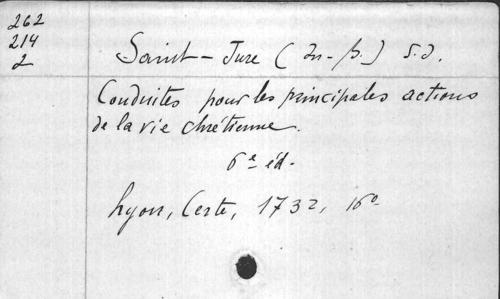 262
214
2
Saint-Jure (Jn-B.) S.J.
Conduites pour les principales actions
de la vie chrétienne.
6e éd.
Lyon, Certe, 1732, 16°